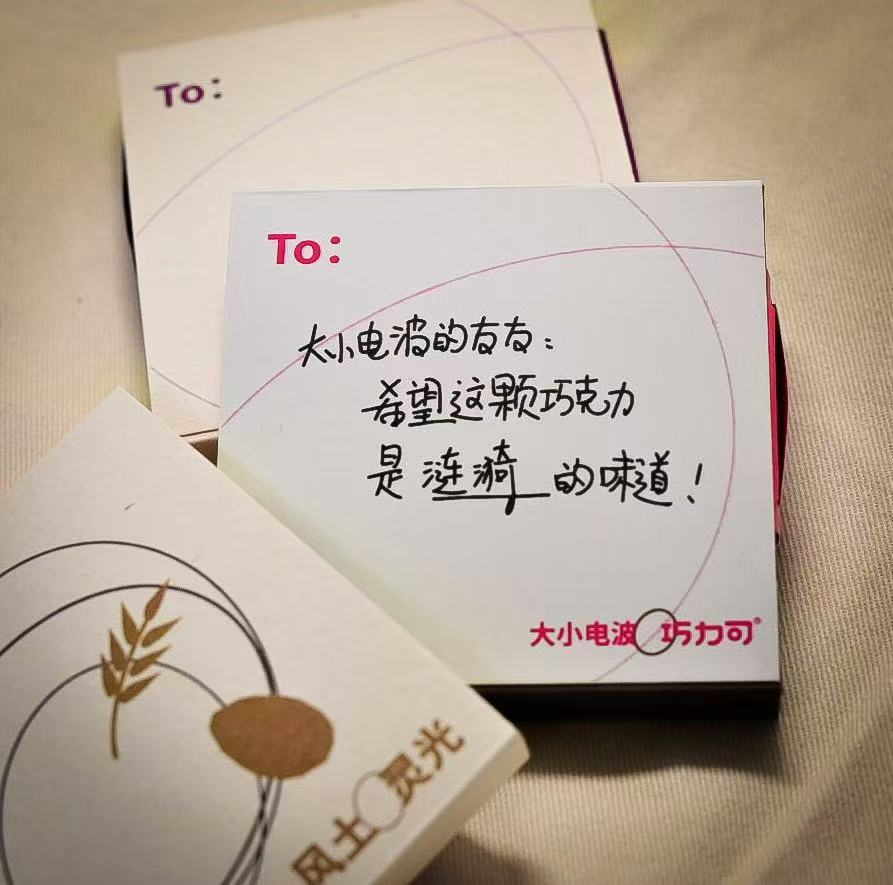 To:
To:
大小电波的友友：
希望这颗巧克力
是涟漪的味道！
大小电波 巧力可®
风土 灵光